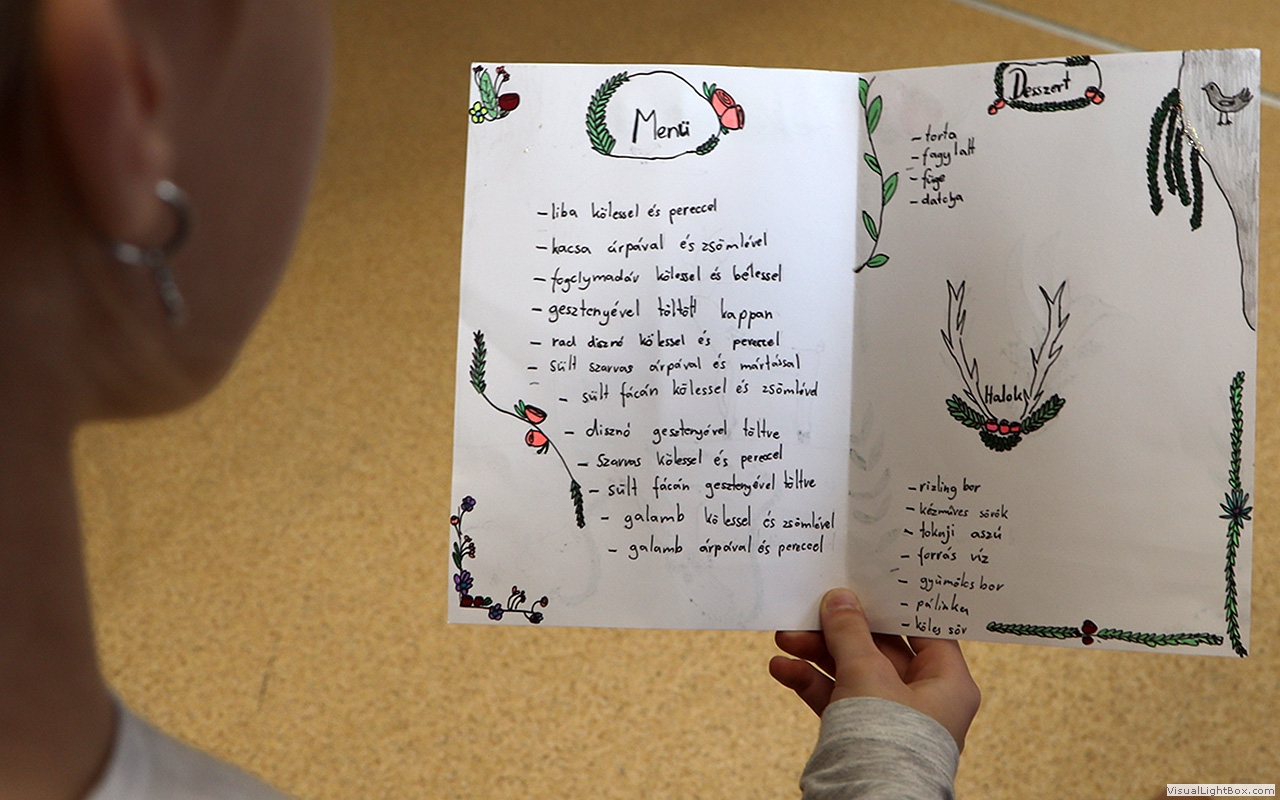 Menü
- liba kölessel és pereccel
- kacsa árpával és zsömlével
- fogolymadár kölessel és bélessel
- gesztenyével töltött kappan
- rad disznó kölessel és pereccel
- sült szarvas árpával és mártással
- sült fácán kölessel és zsömlével
- disznó gesztenyével töltve
- szarvas kölessel és pereccel
- sült fácán gesztenyével töltve
- galamb kölessel és zsömlével
- galamb árpával és pereccel
Desszert
- torta
- fagylalt
- füge
- datolya
Italok
- rizling bor
- kézműves sörök
- tokaji aszú
- forrás víz
- gyümölcs bor
- pálinka
- köles sör
VisualLightBox.com